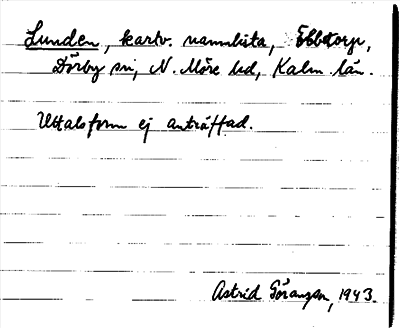 Lunden, kartv. namnlista, Ebbetorp,
Dörby sn, N. Möre hd, Kalm. län.
Uttalsform ej anträffad.
Astrid Göranzon, 1943.